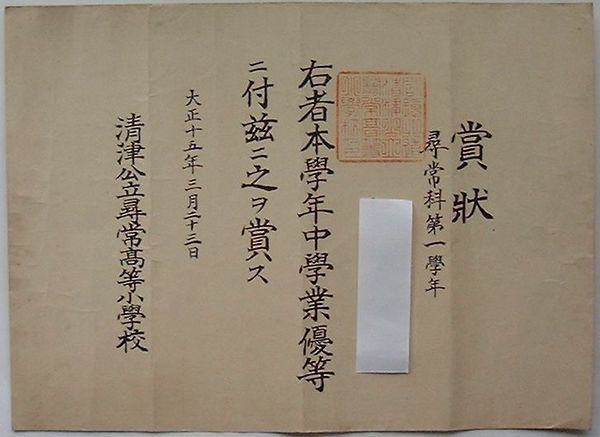 賞狀
尋常科第一學年
右者本學年中學業優等
ニ付茲ニ之ヲ賞ス
大正十五年三月二十三日
清津公立尋常高等小學校